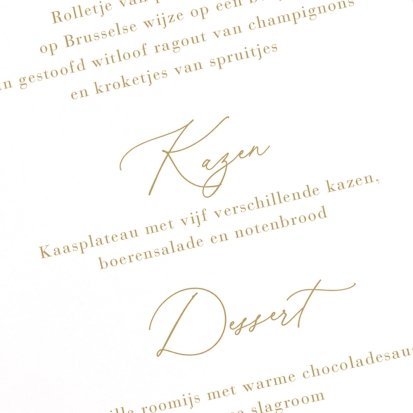 Rolletje van
op Brusselse wijze op een
gestoofd witloof ragout van champignons
en kroketjes van spruitjes
Kazen
Kaasplateau met vijf verschillende kazen,
boerensalade en notenbrood
Dessert
roomijs met warme chocoladesau
slagroom